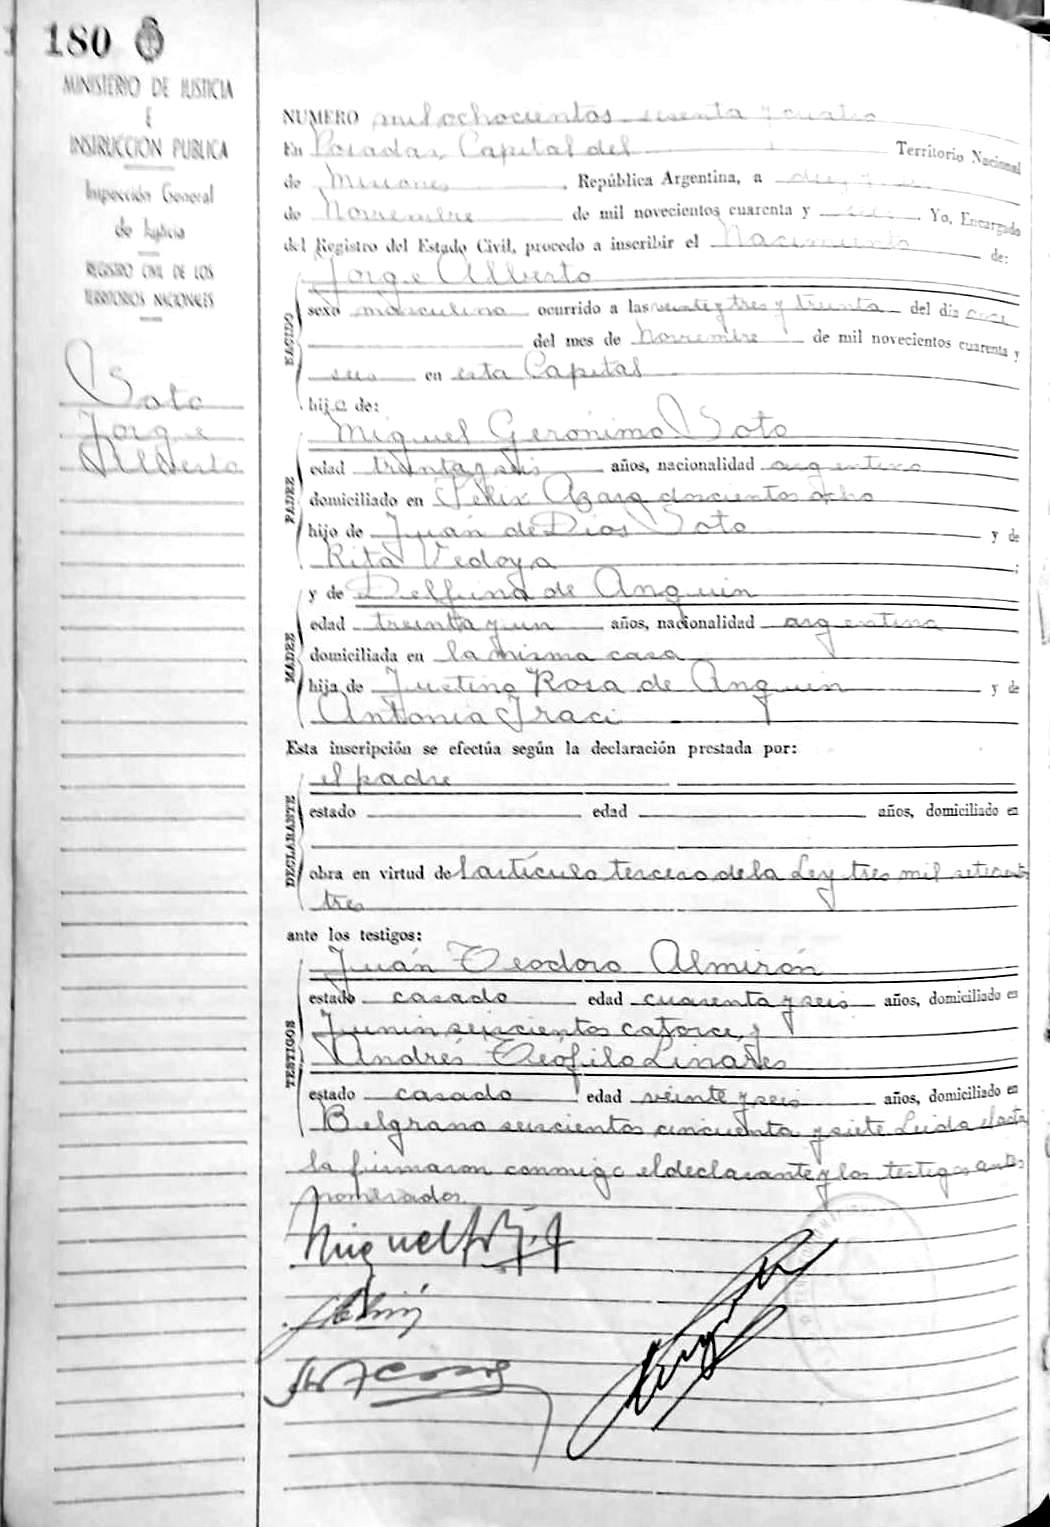 180
MINISTERIO DE JUSTICIA
E
INSTRUCCION PUBLICA
Inspección General
de Justicia
REGISTRO CIVIL DE LOS
TERRITORIOS NACIONALES
Soto
Jorge
Alberto
NUMERO mil ochocientos sesenta y cuatro
En Posadas, Capital del Territorio Nacional
de Misiones, República Argentina, a
de Noviembre de mil novecientos cuarenta y seis. Yo, Encargado
del Registro del Estado Civil, procedo a inscribir el Nacimiento de:
NACIDO
Jorge Alberto
sexo masculino ocurrido a las veinte y tres y treinta del día once
del mes de Noviembre de mil novecientos cuarenta y
seis en esta Capital
hijo de:
PADRE
Miguel Gerónimo Soto
edad treinta y seis años, nacionalidad argentino
domiciliado en Félix Azara doscientos ocho
hijo de Juan de Dios Soto y de
Rita Vedoya ;
MADRE
y de Delfina de Anguin
edad treinta y un años, nacionalidad argentina
domiciliada en la misma casa
hija de Justino Rosa de Anguin y de
Antonia Iraci
Esta inscripción se efectúa según la declaración prestada por:
DECLARANTE
el padre
estado edad años, domiciliado en
obra en virtud del artículo tercero de la Ley tres mil
tres
ante los testigos:
TESTIGOS
Juán Teodoro Almirón
estado casado edad cuarenta y seis años, domiciliado en
Junin seiscientos catorce, y
Andrés Teófilo Linares
estado casado edad veinte y seis años, domiciliado en
Belgrano seiscientos cincuenta y siete Leida el acta
la firmaron conmigo el declarante y los testigos antes
nombrados.